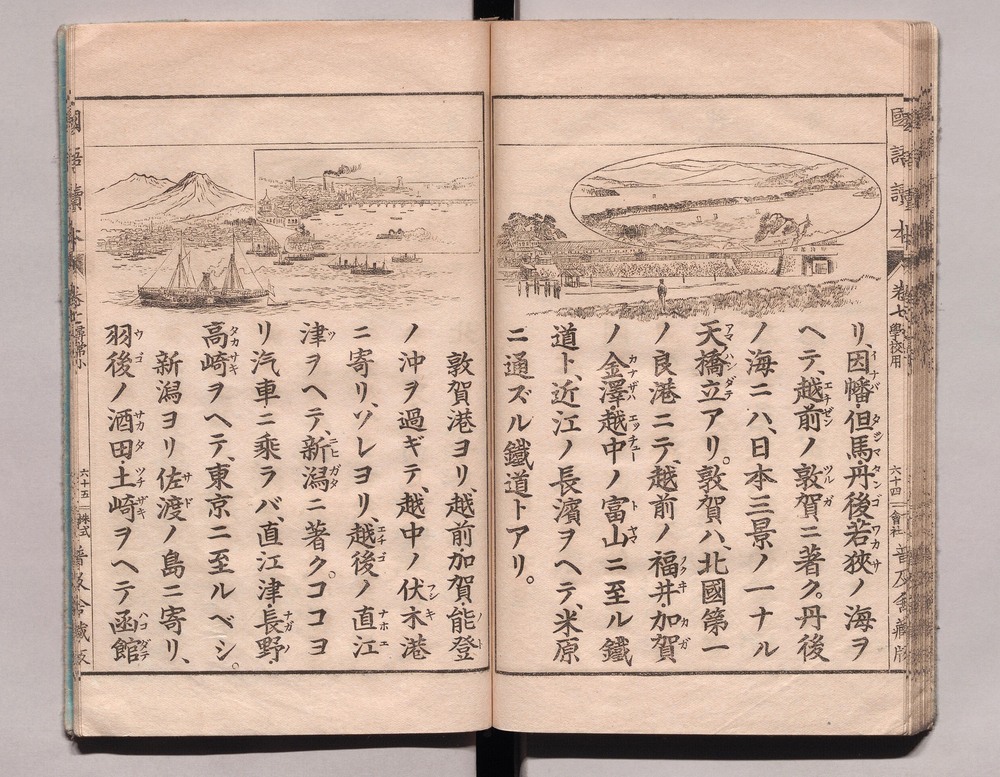 國語讀本
卷七
學校用
六十四
會社
普及舍藏版
リ、因幡・但馬丹後若狹ノ海ヲ
ヘテ、越前ノ敦賀ニ著ク。丹後
ノ海ニハ、日本三景ノ一ナル
天橋立アリ。敦賀ハ、北國第一
ノ良港ニテ、越前ノ福井・加賀
ノ金澤・越中ノ富山ニ至ル鐵
道ト、近江ノ長濱ヲヘテ、米原
ニ通ズル鐵道トアリ。
敦賀港ヨリ、越前・加賀・能登
ノ沖ヲ過ギテ、越中ノ伏木港
ニ寄リ、ソレヨリ、越後ノ直江
津ヲヘテ、新潟ニ著ク。ココヨ
リ汽車ニ乘ラバ、直江津・長野・
高崎ヲヘテ、東京ニ至ルベシ。
新潟ヨリ佐渡ノ島ニ寄リ、
羽後ノ酒田・土崎ヲヘテ函館
國語讀本
六十五
株式
普及舍藏版